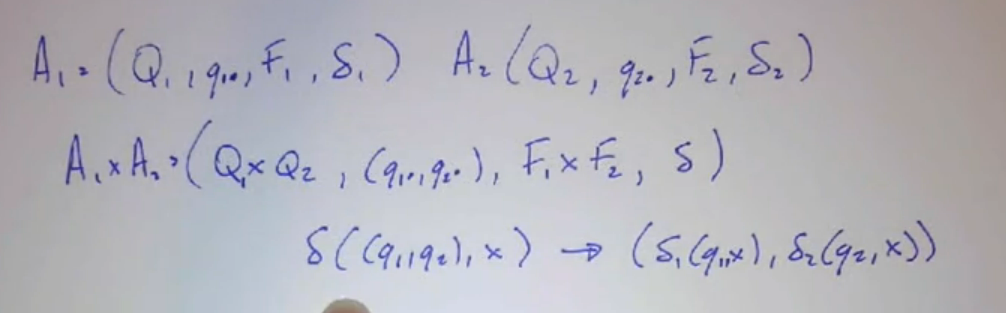 A₁ = (Q₁, q₁₀, F₁, δ₁) A₂ (Q₂, q₂₀, F₂, δ₂)
A₁ × A₂ = (Q₁ × Q₂, (q₁₀, q₂₀), F₁ × F₂, δ)
δ((q₁, q₂), x) → (δ₁(q₁, x), δ₂(q₂, x))